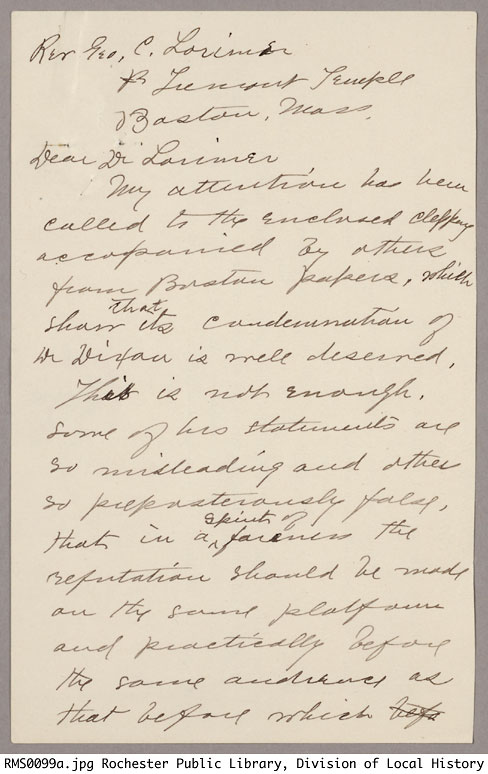 Rev Geo, C. Lorimer
Tremont Temple
Boston, Mass.
Dear Dr Lorimer
My attention has been
called to the enclosed clipping
accopanied by others
from Boston papers, which
that
show its condemnation of
Dr Dixon is well deserved.
This is not enough.
Some of his statements are
so misleading and other
so preposteriously false,
spirit of
that in a ^ fairness the
refutation should be made
on the same platform
and practically before
the same audience as
that before which
RMS0099a.jpg Rochester Public Library, Division of Local History